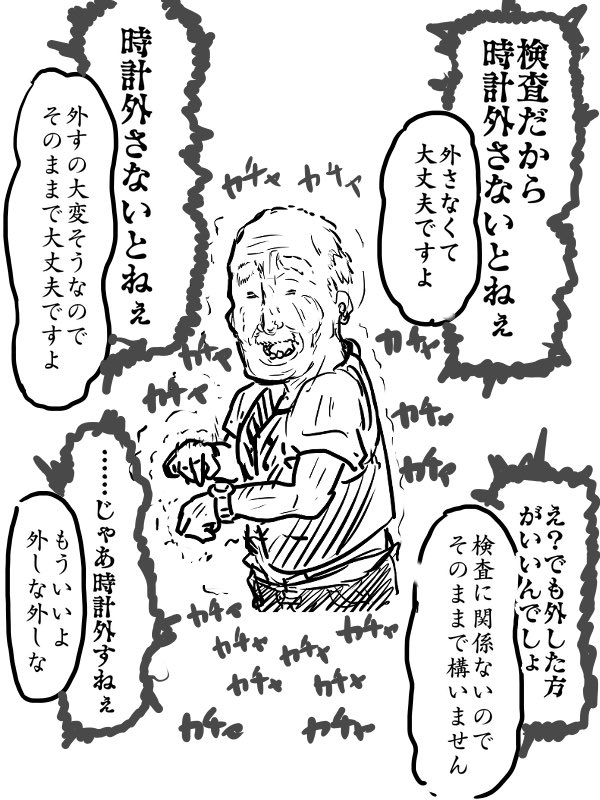 検査だから
時計外さないとねぇ
外さなくて
大丈夫ですよ
時計外さないとねぇ
外すの大変そうなので
そのままで大丈夫ですよ
え?でも外した方
がいいんでしょ
検査に関係ないので
そのままで構いません
……じゃあ時計外すねぇ
もういいよ
外しな外しな
ガチャ ガチャ
ガチャ
ガチャ
ガチャ
ガチャ
ガチャ
ガチャ
ガチャ
ガチャ
ガチャ
ガチャ
ガチャ
ガチャ
ガチャ